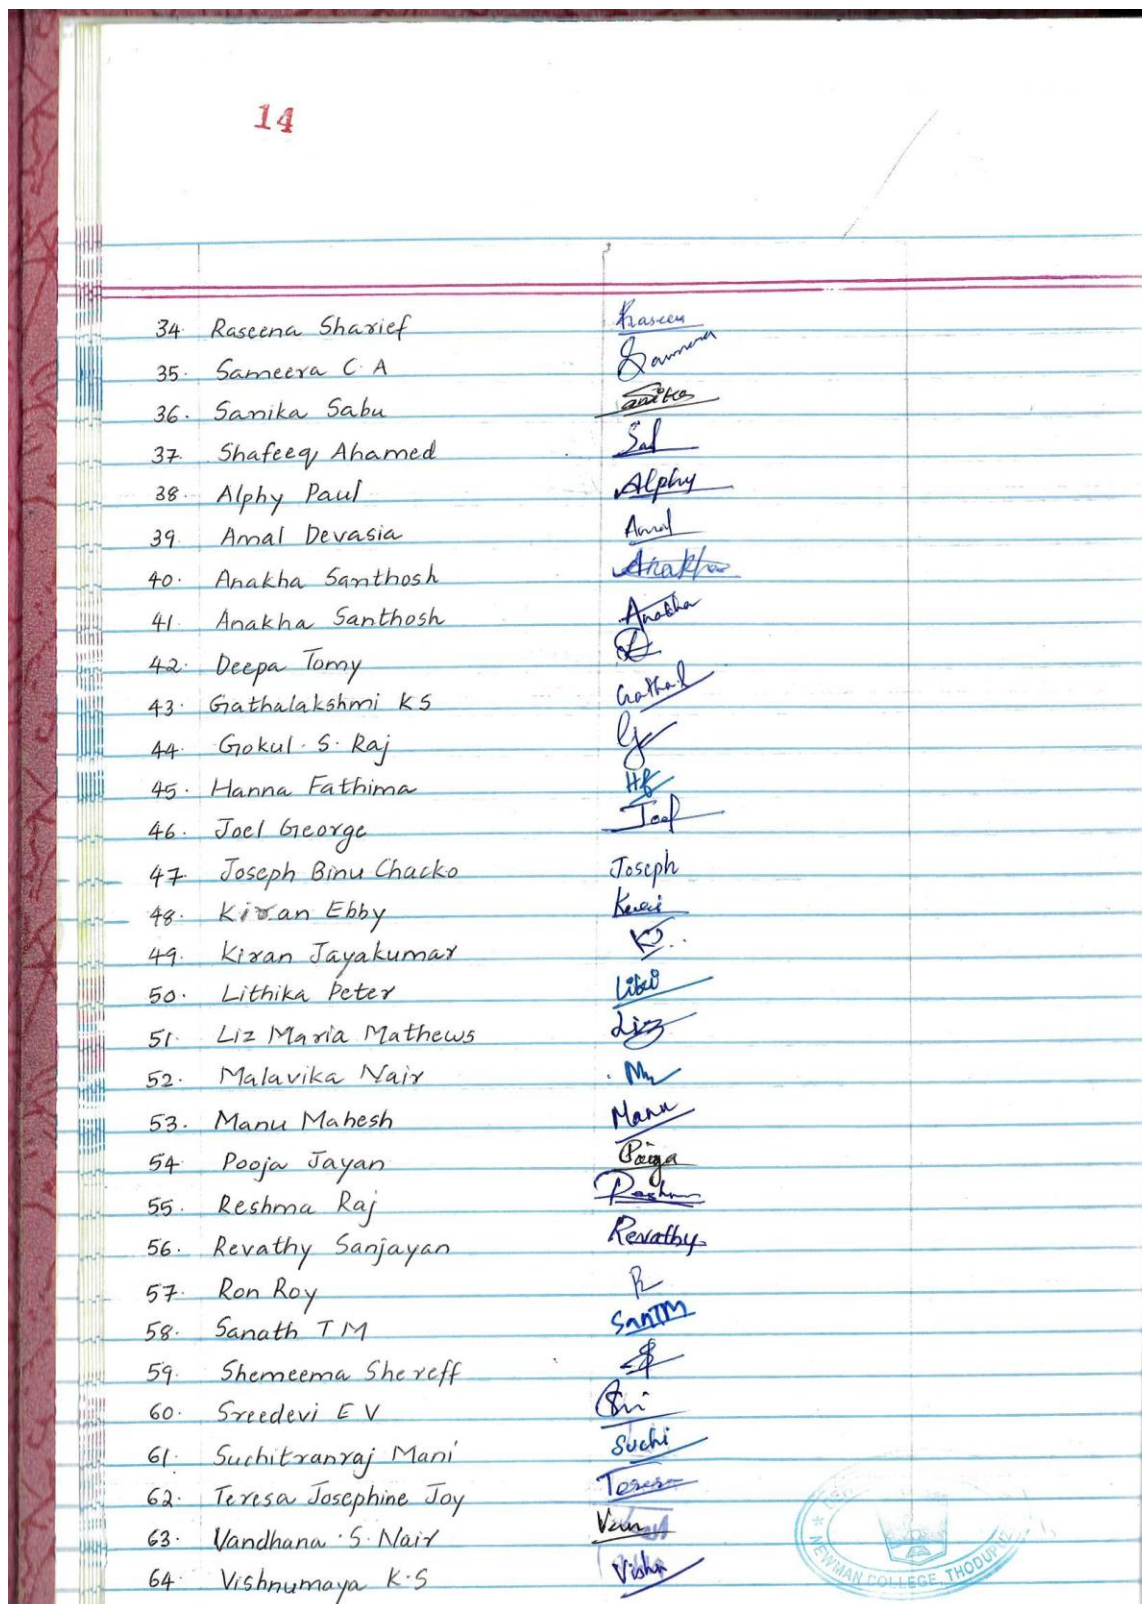 14
34. Raseena Sharief Raseen
35. Sameera C. A Sameera
36. Sanika Sabu Sanika
37. Shafeeq Ahamed
38. Alphy Paul Alphy
39. Amal Devasia Amal
40. Anakha Santhosh Anakha
41. Anakha Santhosh Anakha
42. Deepa Tomy
43. Gathalakshmi K S
44. Gokul. S. Raj
45. Hanna Fathima HF
46. Joel George Joel
47. Joseph Binu Chacko Joseph
48. Kiran Ebby
49. Kiran Jayakumar KJ..
50. Lithika Peter
51. Liz Maria Mathews Liz
52. Malavika Nair
53. Manu Mahesh Manu
54 Pooja Jayan
55. Reshma Raj Reshma
56. Revathy Sanjayan Revathy
57. Ron Roy R
58. Sanath T M SanTM
59. Shemeema Shereff
60. Sreedevi E V Sri
61. Suchitranraj Mani Suchi
62. Teresa Josephine Joy Teresa
63. Vandhana. S. Nair Van
64 Vishnumaya K.S Vishnu
NEWMAN COLLEGE, THODUPU